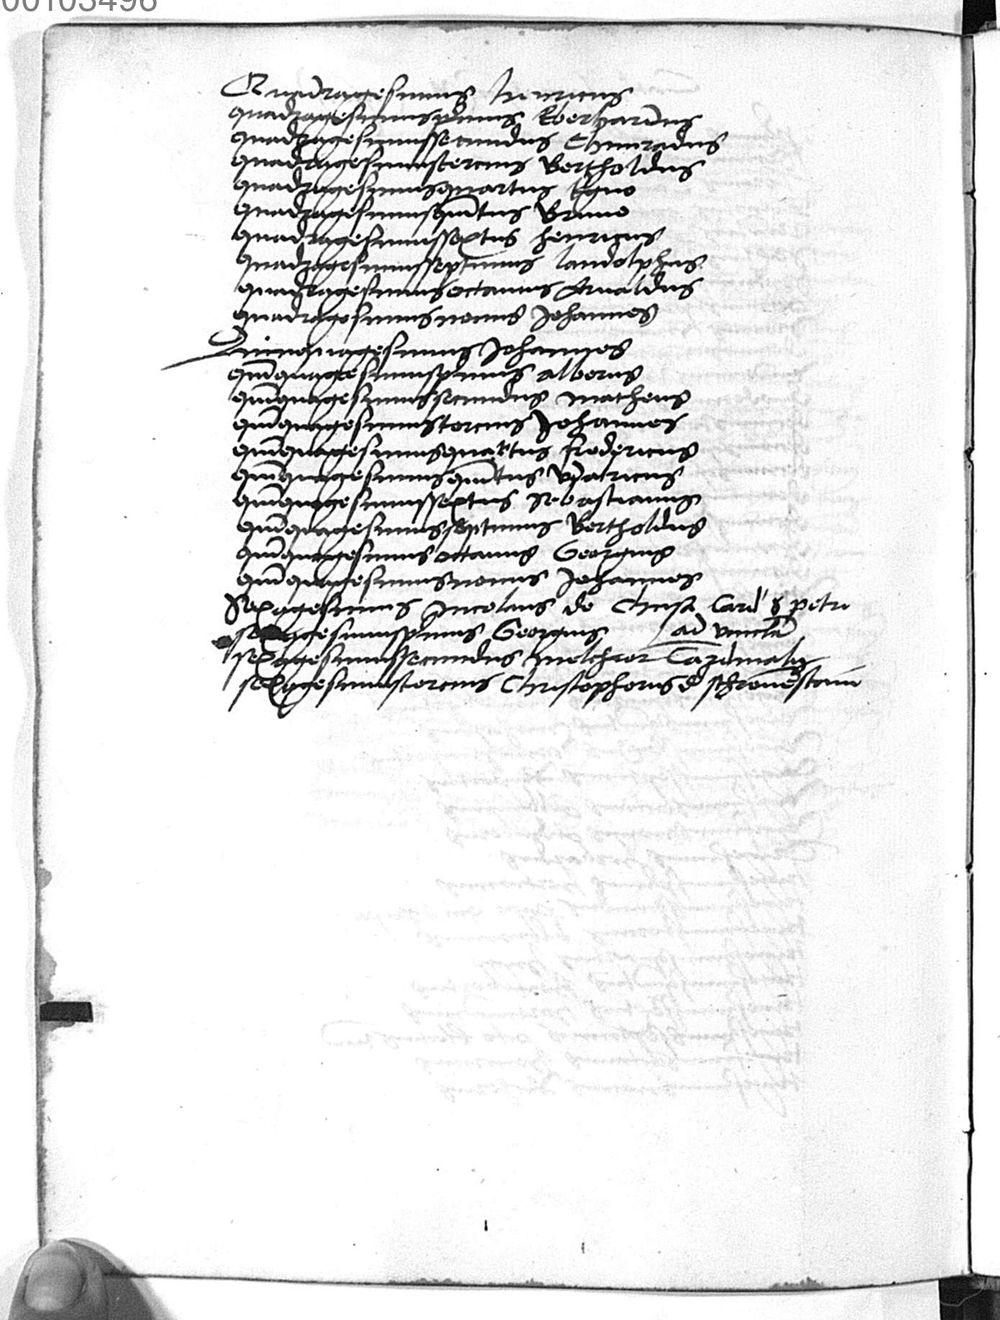 00103496
Quadragesimus henricus
quadragesimusprimus Eberhardus
quadragesimussecundus Chunradus
quadragesimustercius Bertholdus
quadragesimusquartus Egno
quadragesimusquītus Bruno
quadragesimussextus henricus
quadragesimusseptimus Landolphus
quadragesimusoctauus Arnoldus
quadragesimusnonus Johannes
Quinquagesimus Johannes
quīquagesimusprimus albertus
quīquagesimussecundus matheus
quīquagesimustercius Johannes
quīquagesimusquartus fredericus
quīquagesimusquītus Vdalricus
quīquagesimussextus Sebastianus
quīquagesimusseptimus Bertholdus
quīquagesimusoctauus Georgius
quīquagesimusnonus Johannes
Sexagesimus Nicolaus de Chusa Card' S petri
sexagesimusprimus Georgius ad vincla
sexagesimussecundus melchior Cardinalis
sexagesimustercius Christophorus